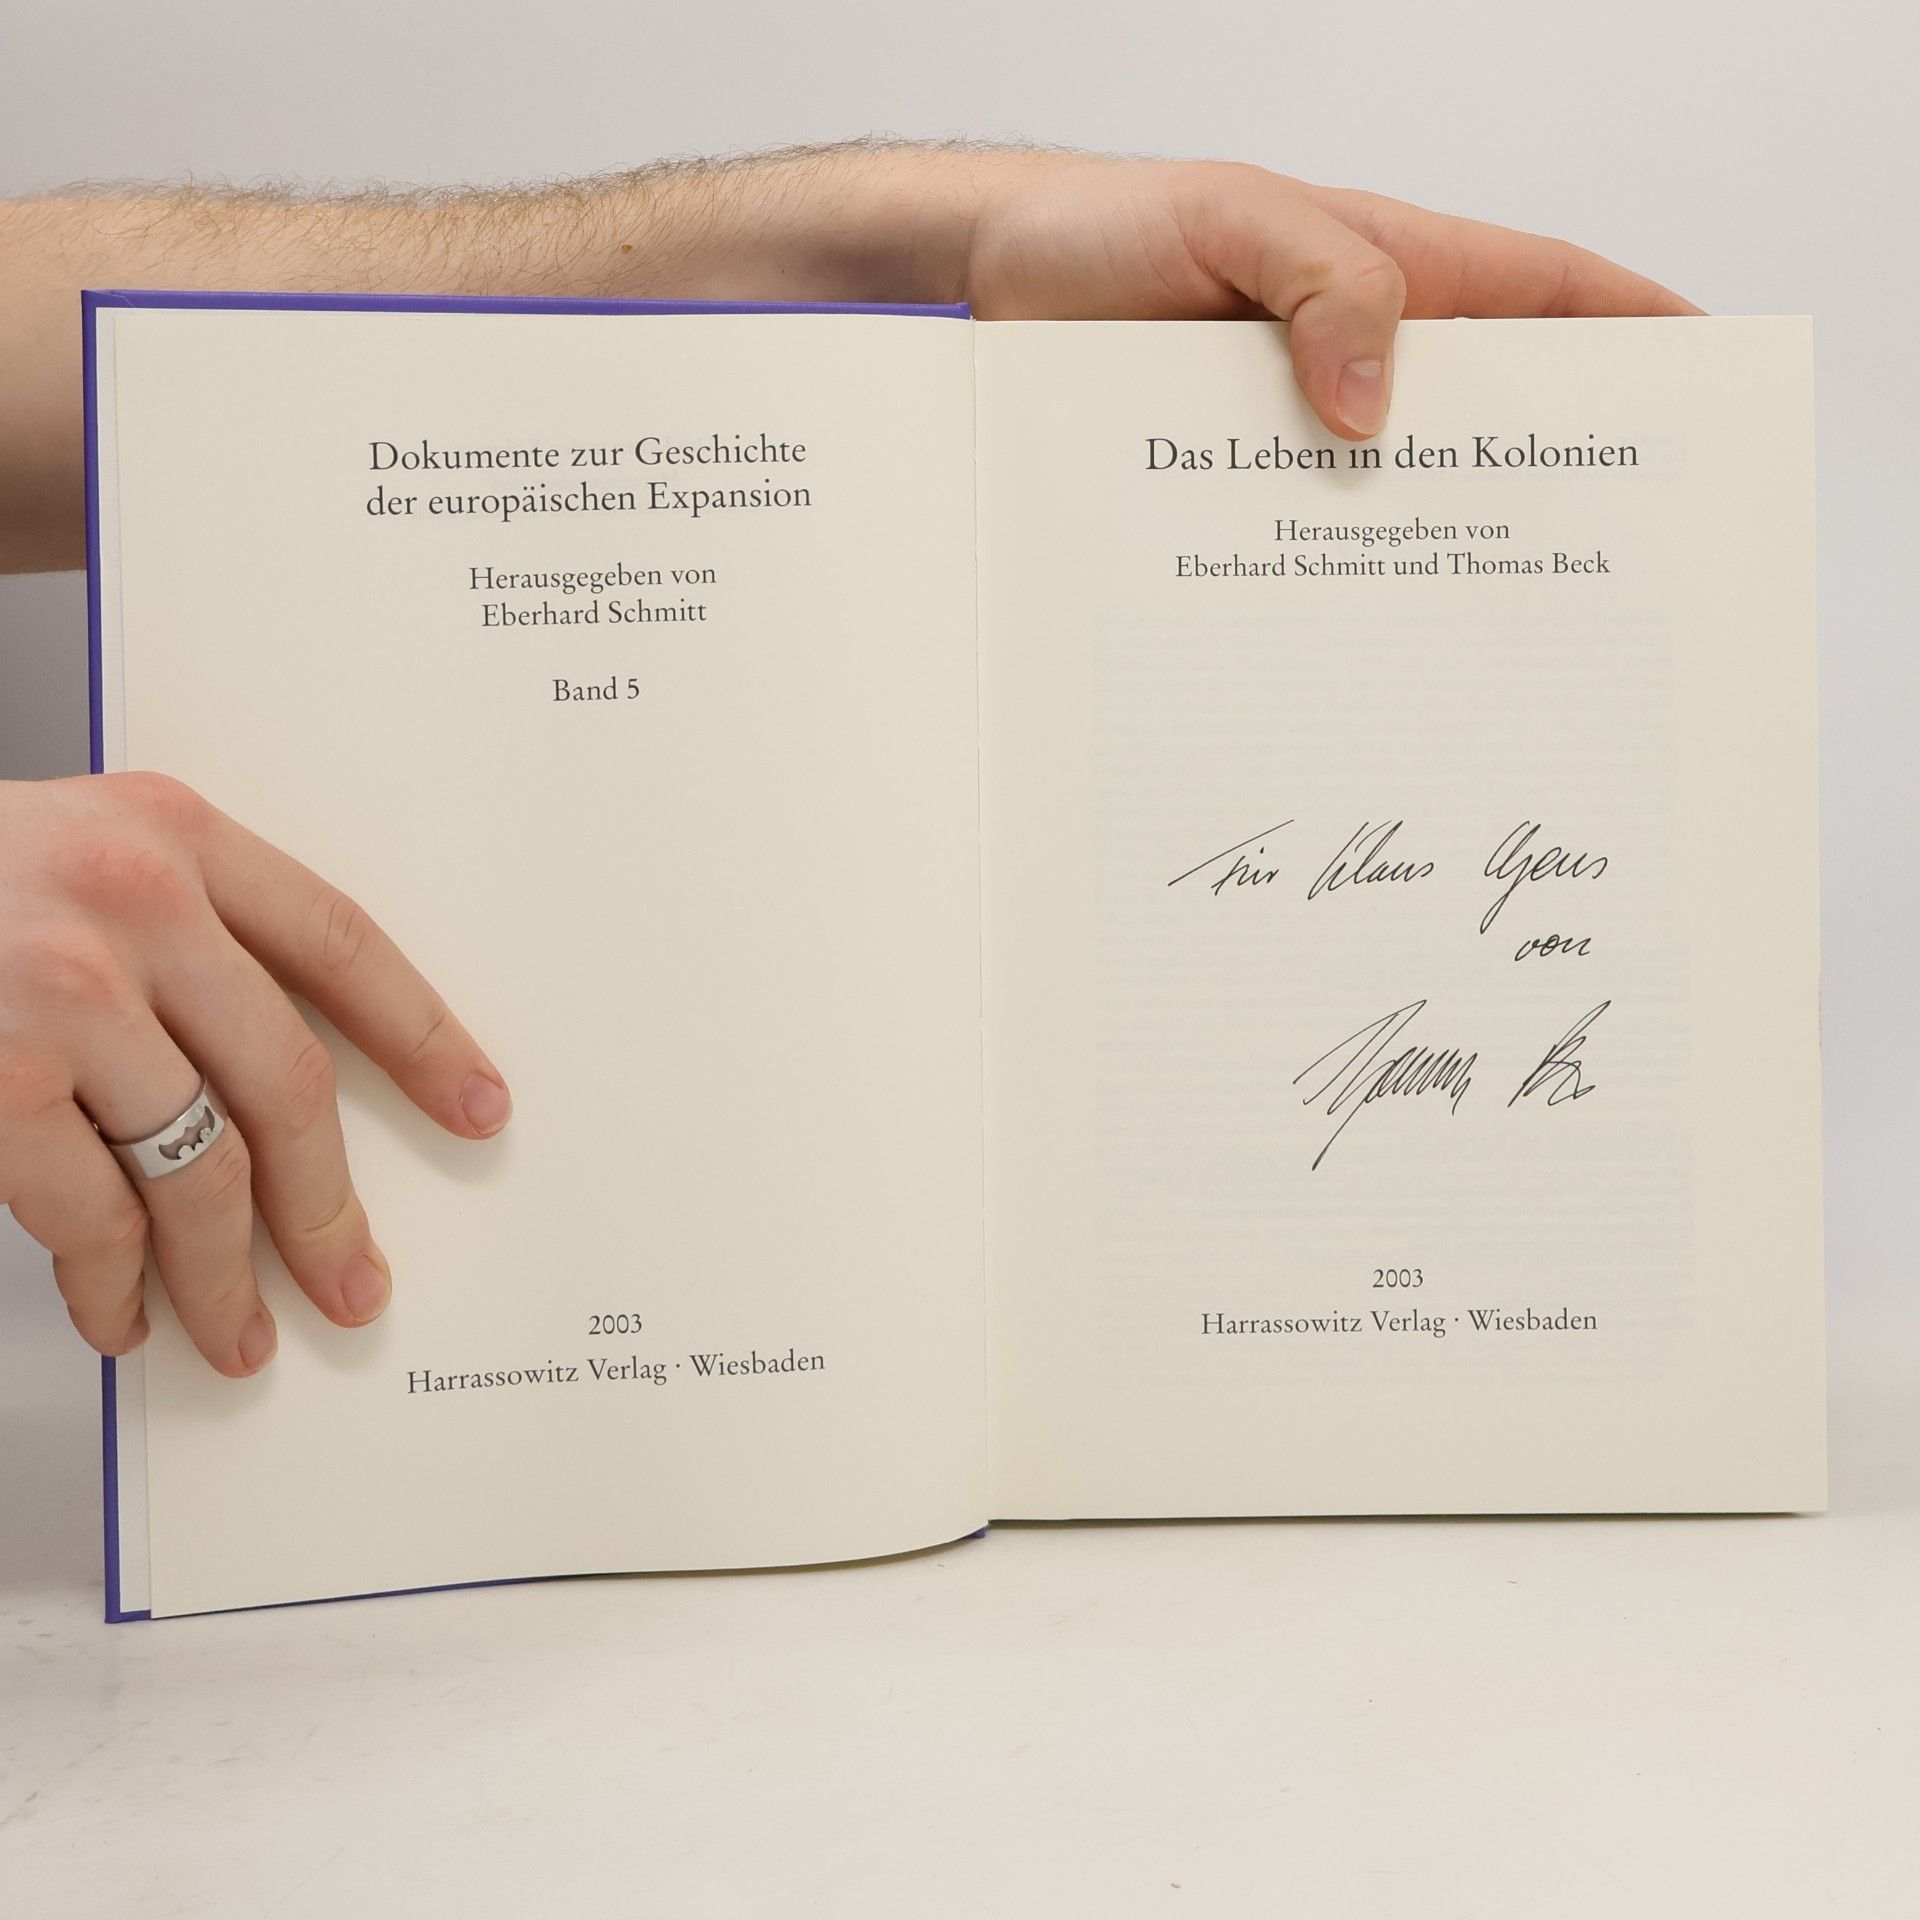 Dokumente zur Geschichte
der europäischen Expansion
Herausgegeben von
Eberhard Schmitt
Band 5
2003
Harrassowitz Verlag · Wiesbaden
Das Leben in den Kolonien
Herausgegeben von
Eberhard Schmitt und Thomas Beck
Für Klaus
von
2003
Harrassowitz Verlag · Wiesbaden